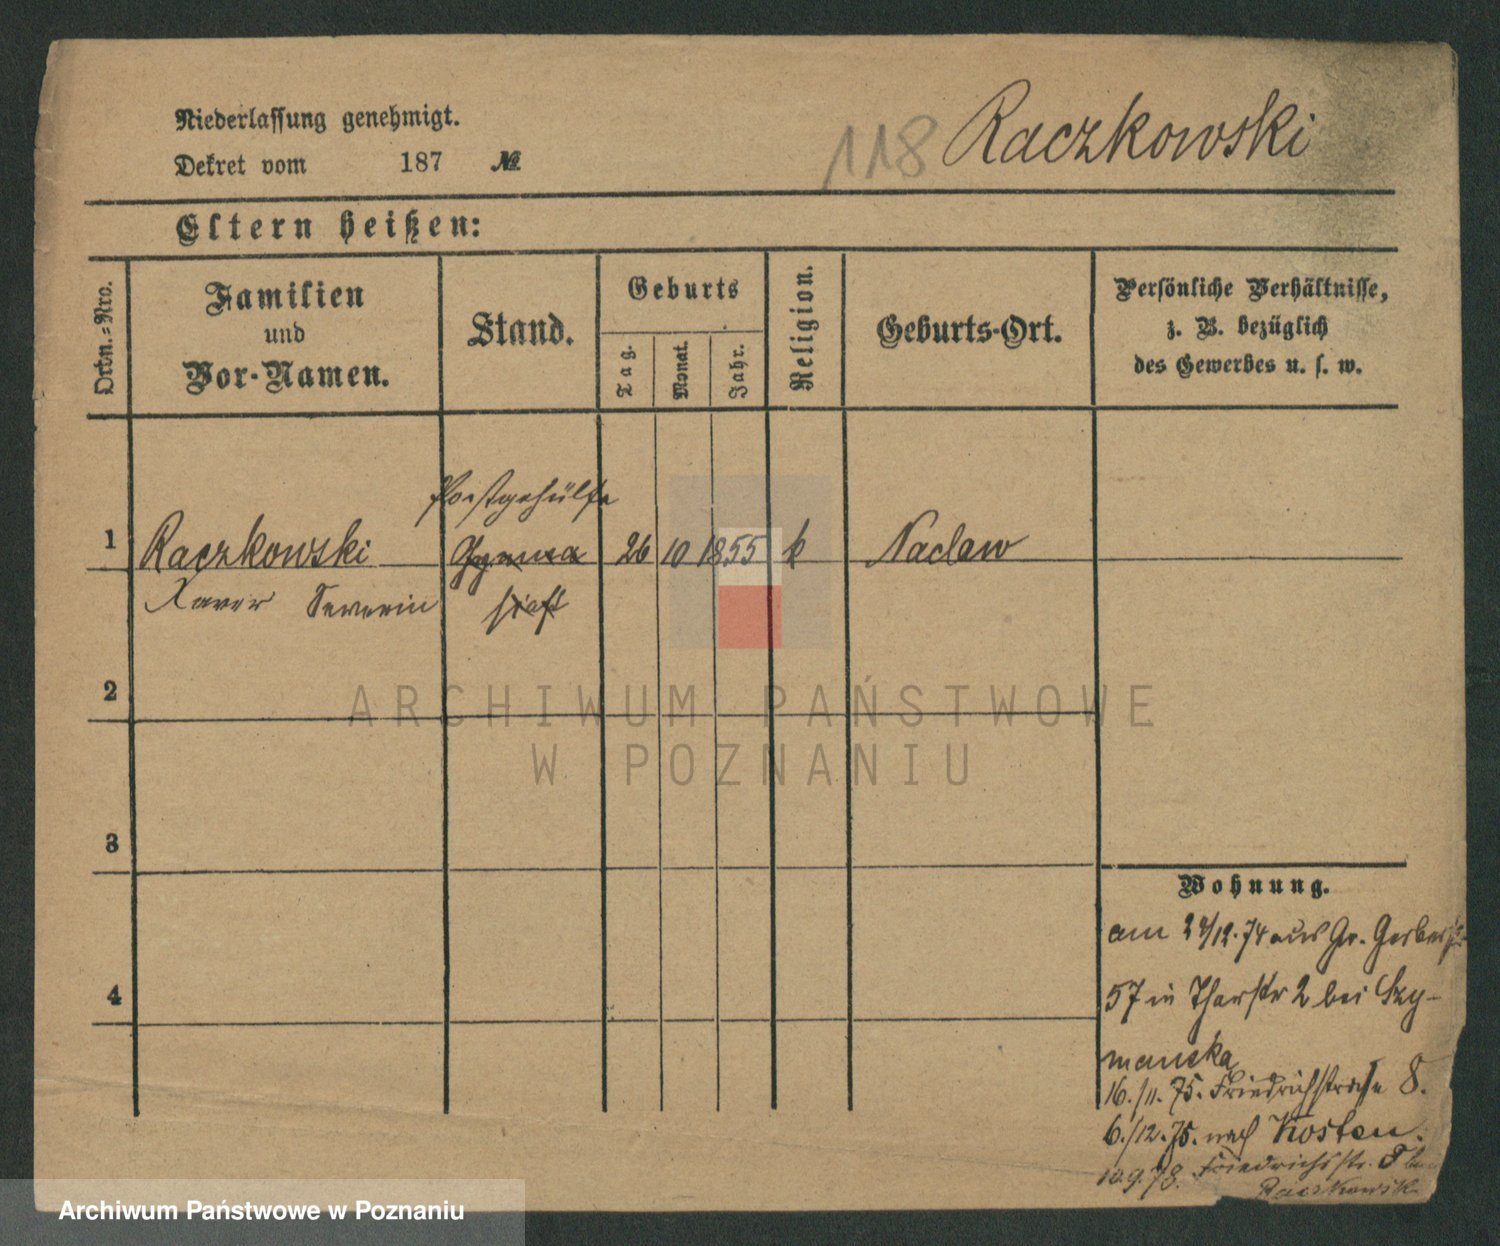 Niederlassung genehmigt.
Dekret vom 187 №
118 Raczkowski
Eltern heißen:
Ordn.=Nro.
Familien
und
Vor-Namen.
Stand.
Geburts
Tag.
Monat.
Jahr.
Religion.
Geburts-Ort.
Persönliche Verhältnisse,
z. B. bezüglich
des Gewerbes u. s. w.
Postgehülfe
1 Raczkowski Gymna 26 10 1855 k Naclaw
Xaver Severin siast
2
ARCHIWUM PAŃSTWOWE
W POZNANIU
3
4
Wohnung.
am 24/12.74 aus Gr. Gerberstr
57 in Thorstr 2 bei Szy-
manska
16./11.75. Friedrichstraße 8.
6./12.75. nach Kosten.
10.9.78. Friedrichsstr. 8 bei
Raczkowsk
Archiwum Państwowe w Poznaniu